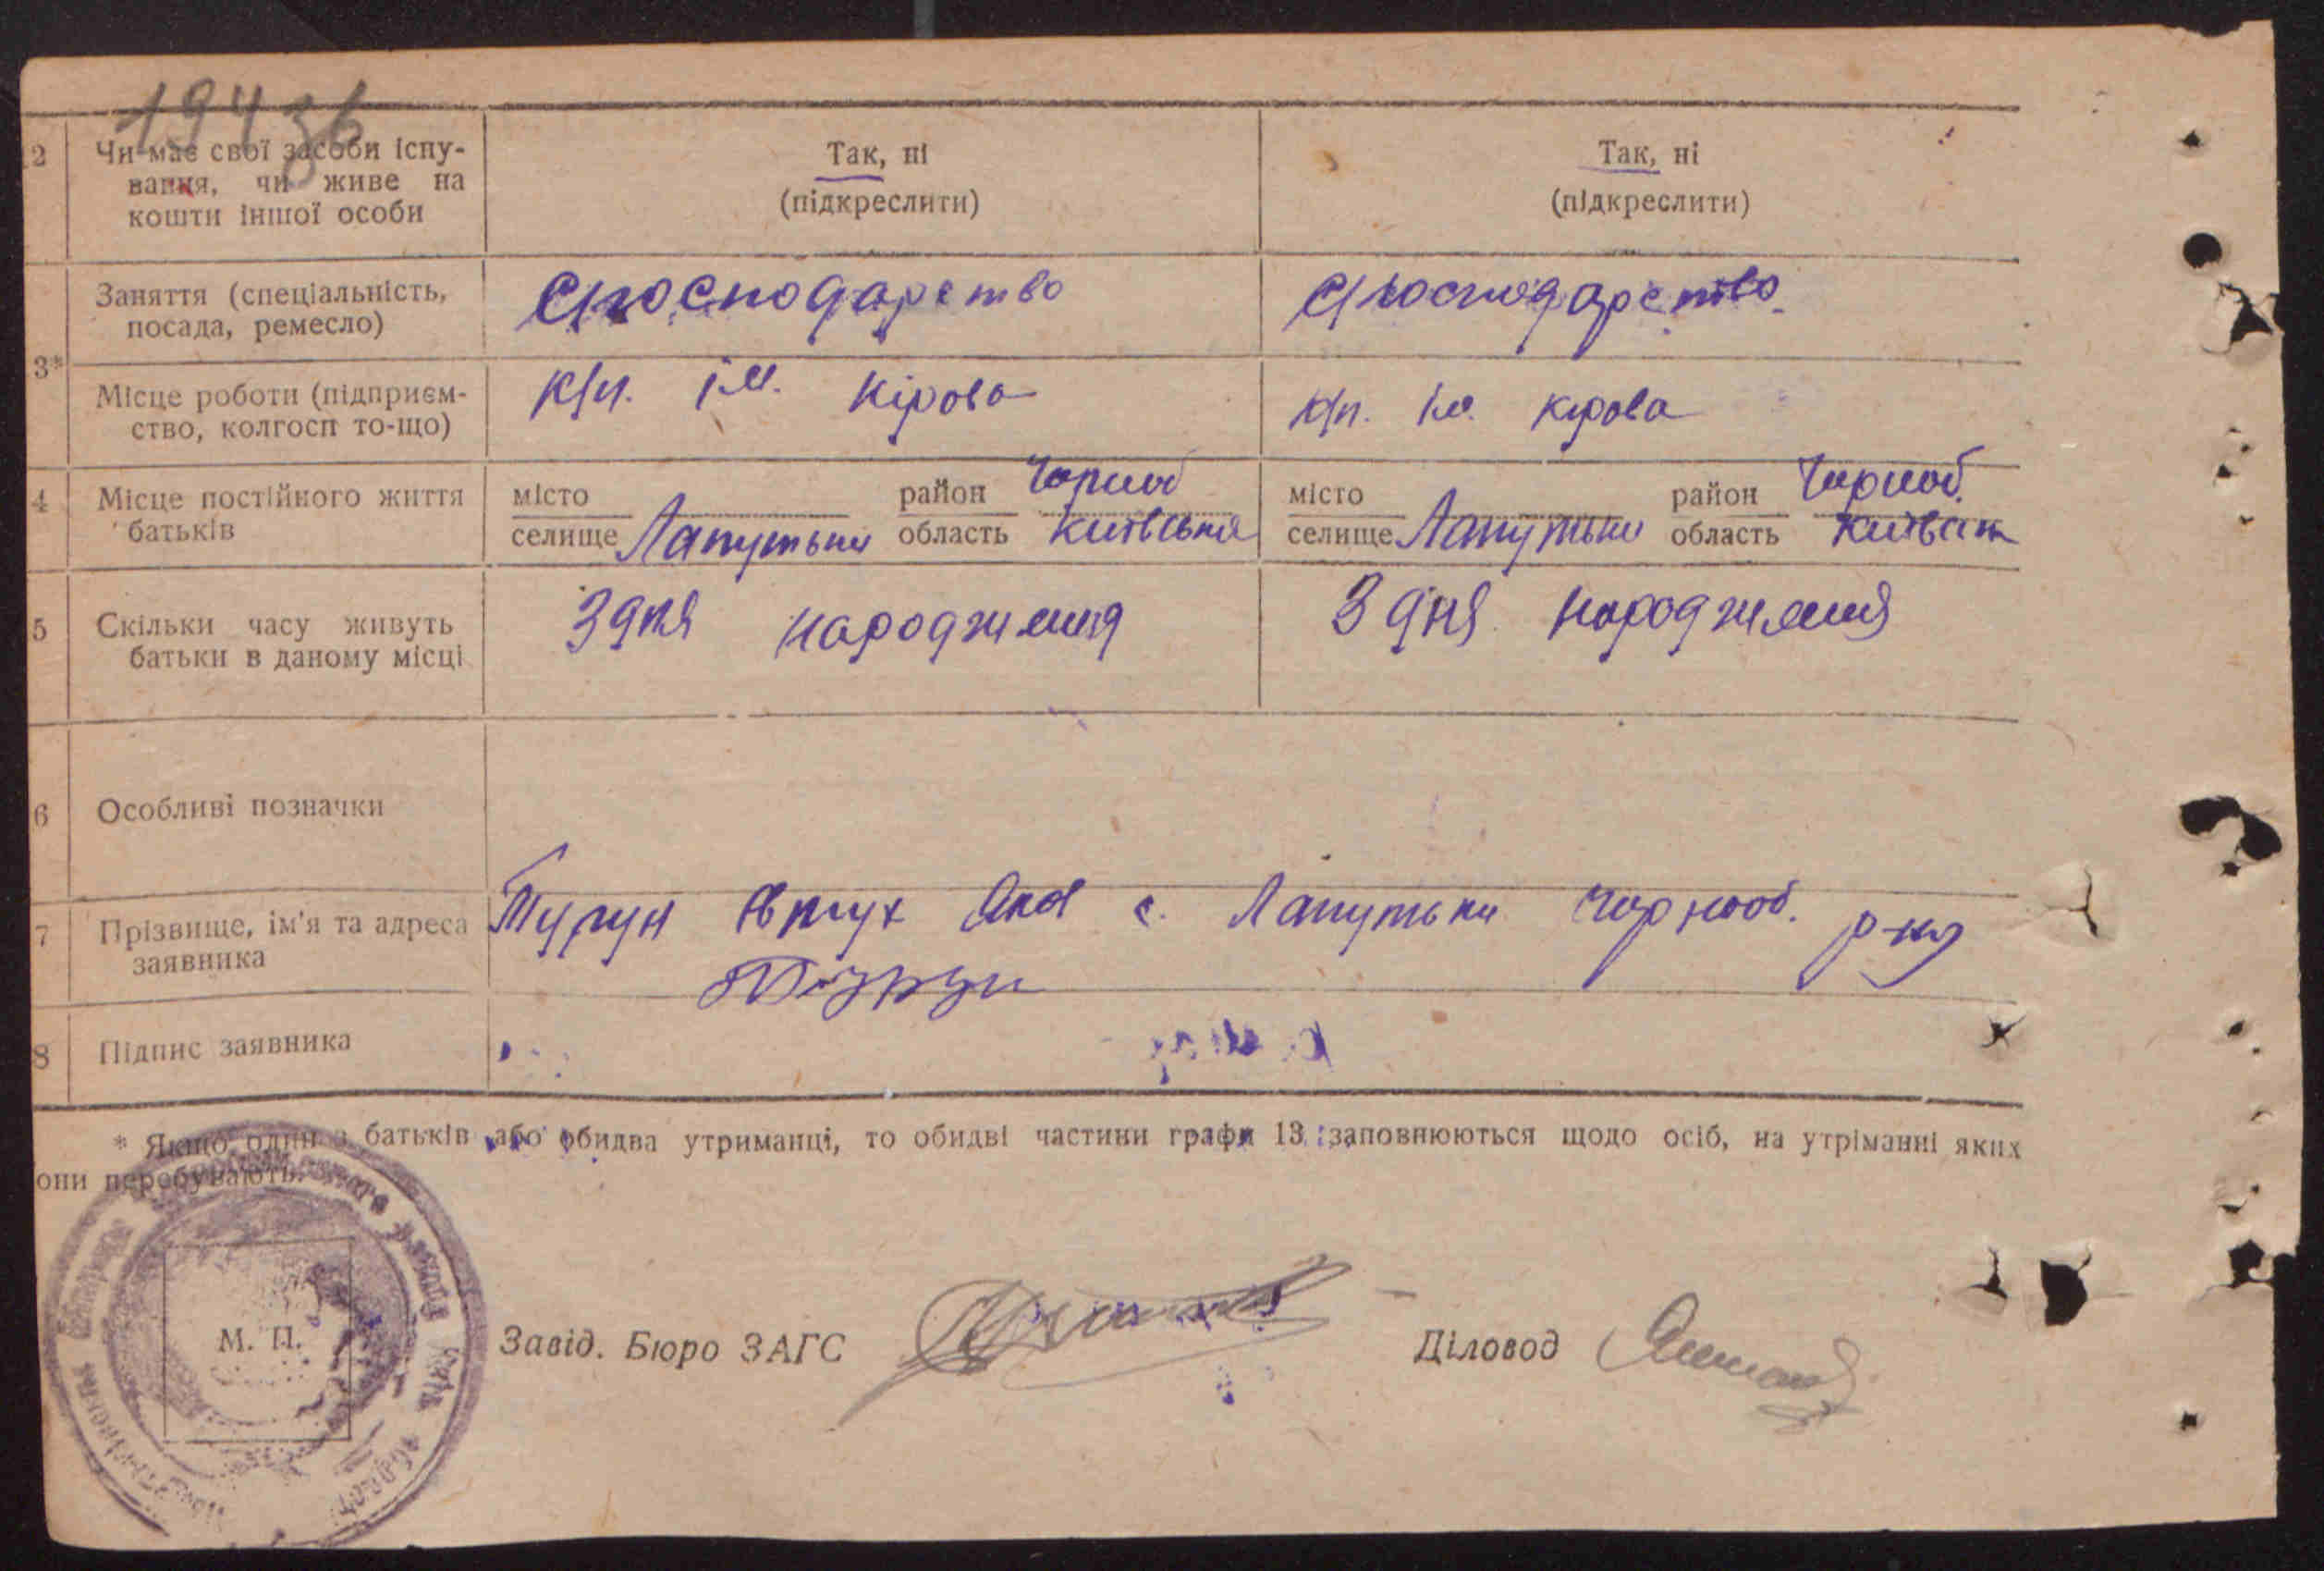 19436
2 Чи має свої засоби існу- Так, ні Так, ні
вання, чи живе на (підкреслити) (підкреслити)
кошти іншої особи
Заняття (спеціальність, С/господарство С/господарство.
посада, ремесло)
3*
Місце роботи (підприєм- к/п. ім. Кірова к/п. ім. Кірова
ство, колгосп то-що)
4 Місце постійного життя місто район Чорноб місто район Чорноб.
батьків селище Лапутьки область Київська селище Лапутьки область Київськ
5 Скільки часу живуть З дня народження З дня народження
батьки в даному місці
6 Особливі позначки
7 Прізвище, ім'я та адреса с. Лапутьки Чорноб. р-ну
заявника
8 Підпис заявника
* Якщо один з батьків або обидва утриманці, то обидві частини графи 13 заповнюються щодо осіб, на утріманні яких
они перебувають.
М. П.
Завід. Бюро ЗАГС Діловод